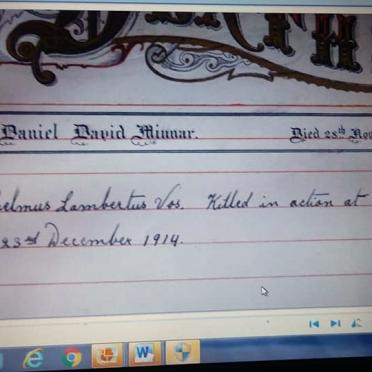 Daniel David Minnar. Died 28th Nov
elmus Lambertus Vos. Killed in action at
23rd December 1914.